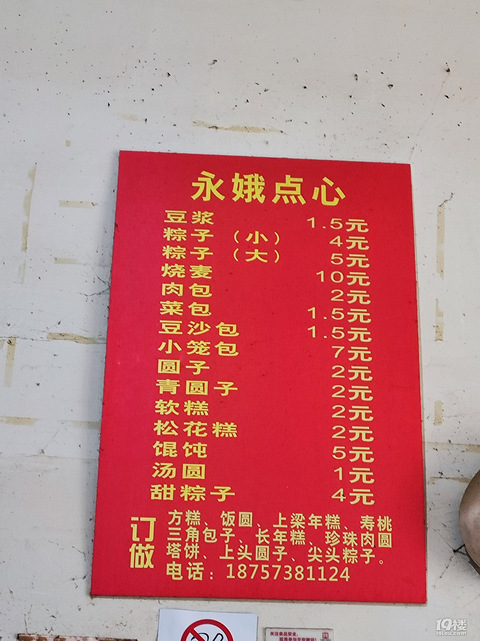 永娥点心
豆浆 1.5元
粽子（小） 4元
粽子（大） 5元
烧麦 10元
肉包 2元
菜包 1.5元
豆沙包 1.5元
小笼包 7元
圆子 2元
青圆子 2元
软糕 2元
松花糕 2元
馄饨 5元
汤圆 1元
甜粽子 4元
订做
方糕、饭圆、上梁年糕、寿桃
三角包子、长年糕、珍珠肉圆
塔饼、上头圆子、尖头粽子。
电话：18757381124
19楼